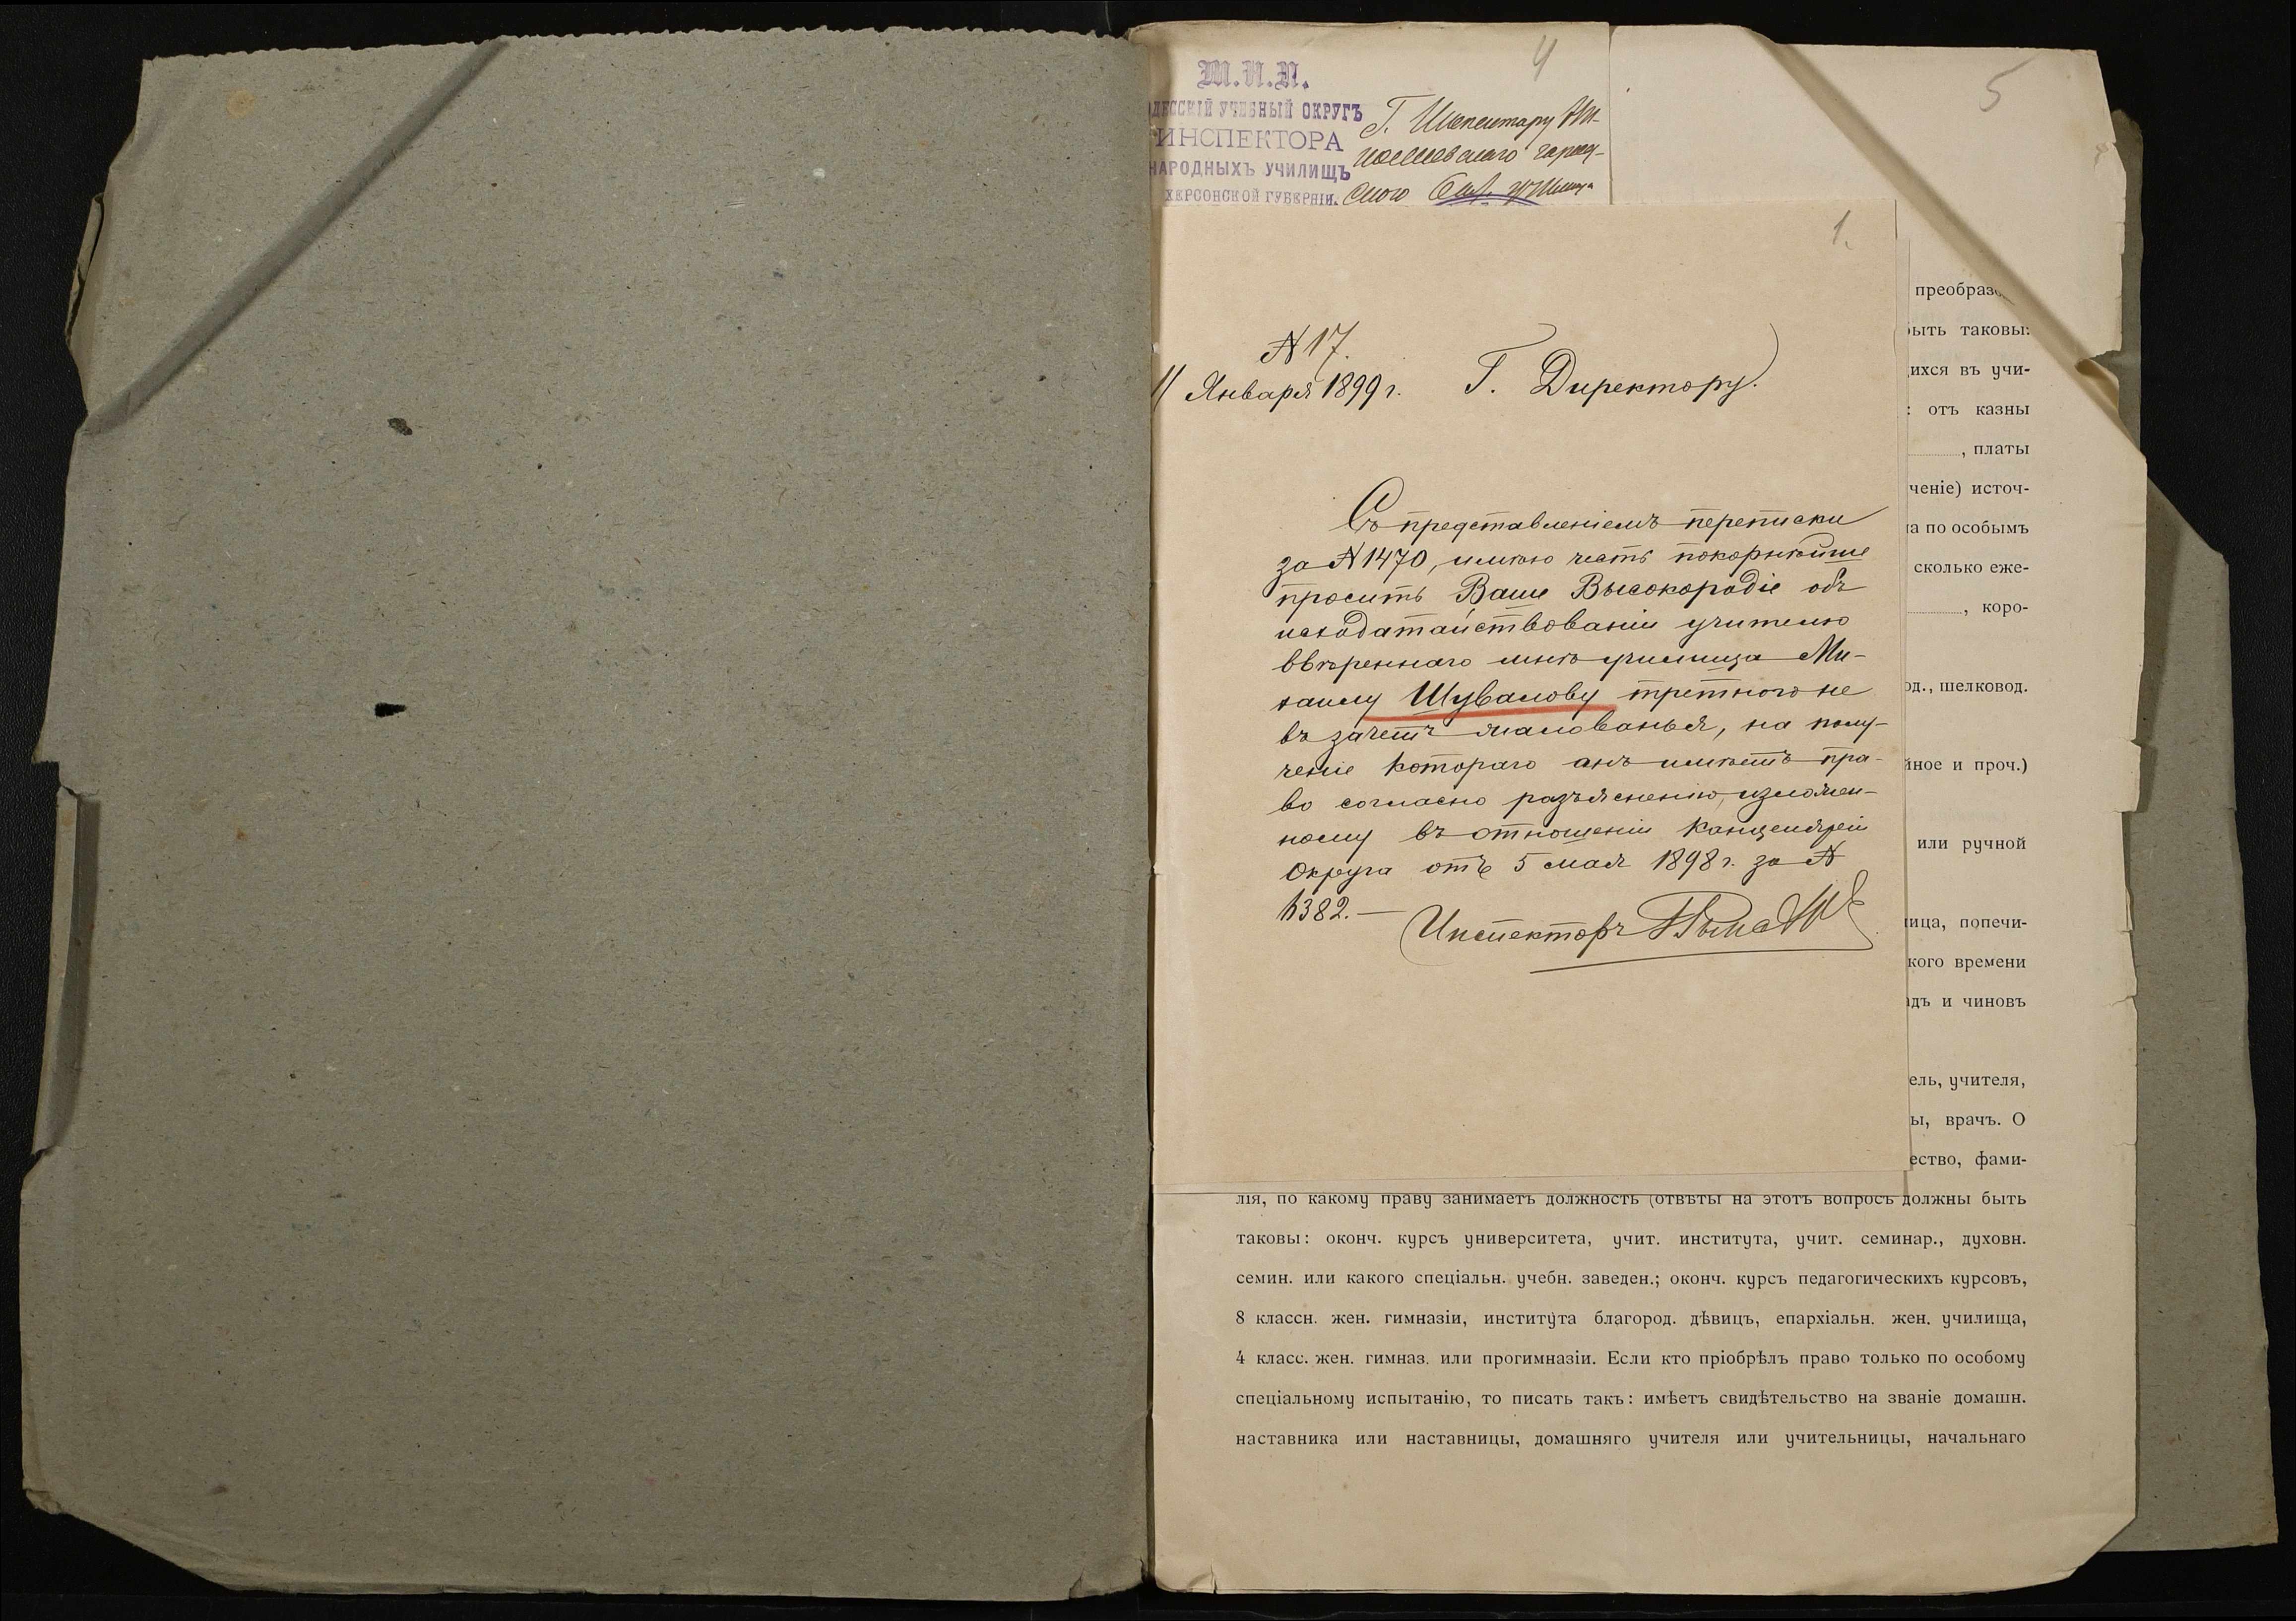 4
5
М.Н.П.
ОДЕССКІЙ УЧЕБНЫЙ ОКРУГЪ
ИНСПЕКТОРА
НАРОДНЫХЪ УЧИЛИЩЪ
ХЕРСОНСКОЙ ГУБЕРНІИ.
1.
N 17.
11 Января 1899 г.
Г. Директору.
Съ представленіемъ переписки
за N 1470, имѣю честь покорнѣйше
просить Ваше Высокородіе объ
исходатайствованіи учителю
ввѣреннаго мнѣ училища Ми-
хаилу Шувалову третного не
въ зачетъ жалованья, на полу-
ченіе котораго онъ имѣетъ пра-
во согласно разъясненію, изложен-
ному въ отношеніи Канцеляріи
Округа отъ 5 мая 1898 г. за N
Инспекторъ
преобраз
быть таковы:
ихся въ учи-
: отъ казны
, платы
ченіе) источ-
на по особымъ
сколько еже-
, коро-
од., шелковод.
йное и проч.)
или ручной
ница, попечи-
кого времени
адъ и чиновъ
ель, учителя,
ы, врачъ. О
ество, фами-
лія, по какому праву занимаетъ должность (отвѣты на этотъ вопросъ должны быть
таковы: оконч. курсъ университета, учит. института, учит. семинар., духовн.
семин. или какого спеціальн. учебн. заведен.; оконч. курсъ педагогическихъ курсовъ,
8 классн. жен. гимназіи, института благород. дѣвицъ, епархіальн. жен. училища,
4 класс. жен. гимназ. или прогимназіи. Если кто пріобрѣлъ право только по особому
спеціальному испытанію, то писать такъ: имѣетъ свидѣтельство на званіе домашн.
наставника или наставницы, домашняго учителя или учительницы, начальнаго